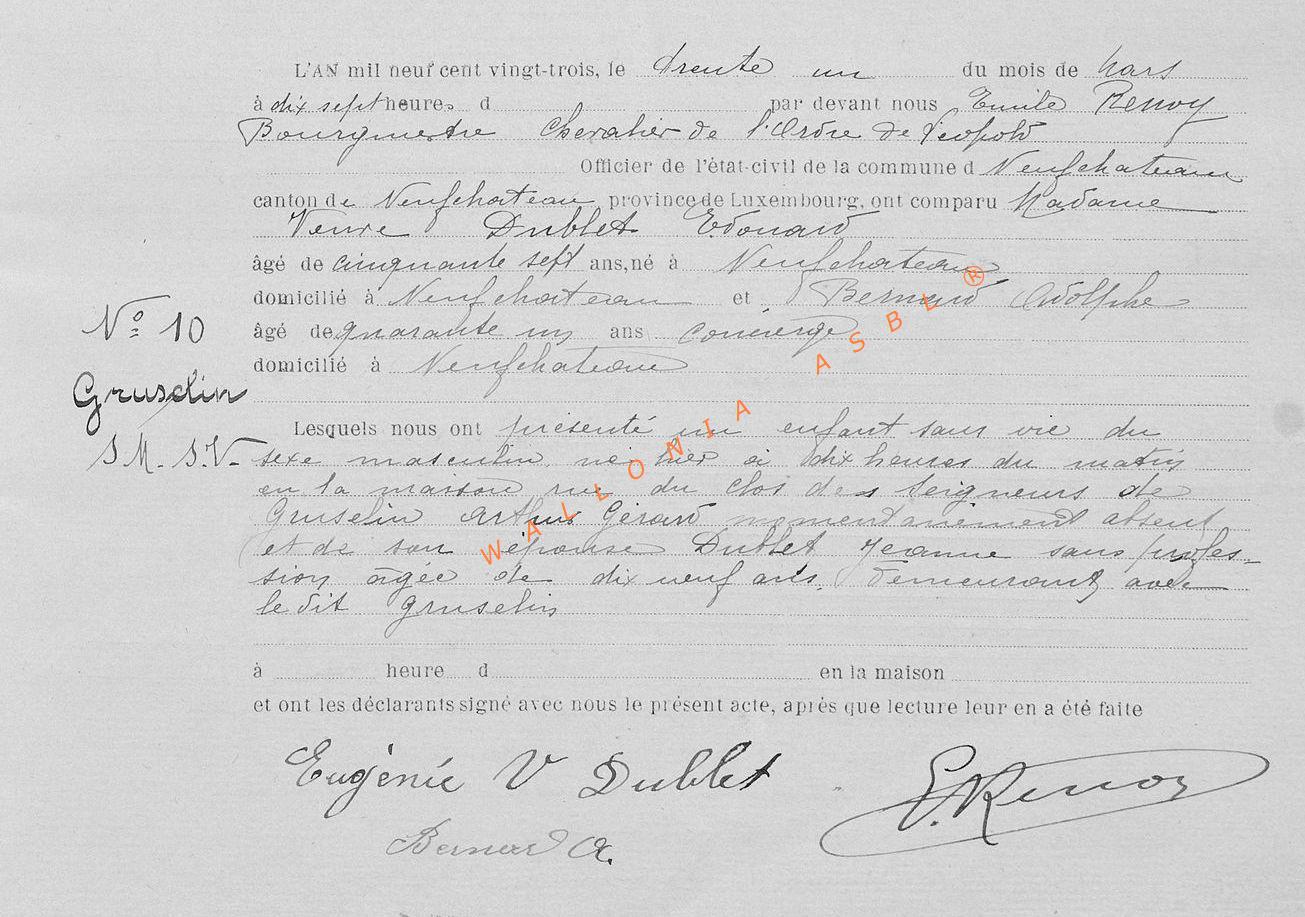 L'AN mil neuf cent vingt-trois, le trente un du mois de Mars
à dix sept heures d par devant nous Emile Renoy
Bourgmestre Chevalier de l'Ordre de Léopold
Officier de l'état-civil de la commune d Neufchateau
canton de Neufchateau province de Luxembourg, ont comparu Madame
Veuve Dublet Edouard
âgé de cinquante sept ans, né à Neufchateau
domicilié à Neufchateau et Bernard Adolphe
N° 10
âgé de quarante un ans concierge
domicilié à Neufchateau
Gruselin
Lesquels nous ont présenté un enfant sans vie du
S M. S.V.
sexe masculin, né hier à dix heures du matin
en la maison rue du Clos des Seigneurs de
Gruselin Arthur Gérard momentanément absent
et de son épouse Dublet Jeanne sans profes-
sion âgée de dix neuf ans, demeurant avec
le dit Gruselin
à heure d en la maison
et ont les déclarants signé avec nous le présent acte, après que lecture leur en a été faite
Eugénie V Dublet
E. Renoy
Bernard A.
WALLONIA ASBL ®